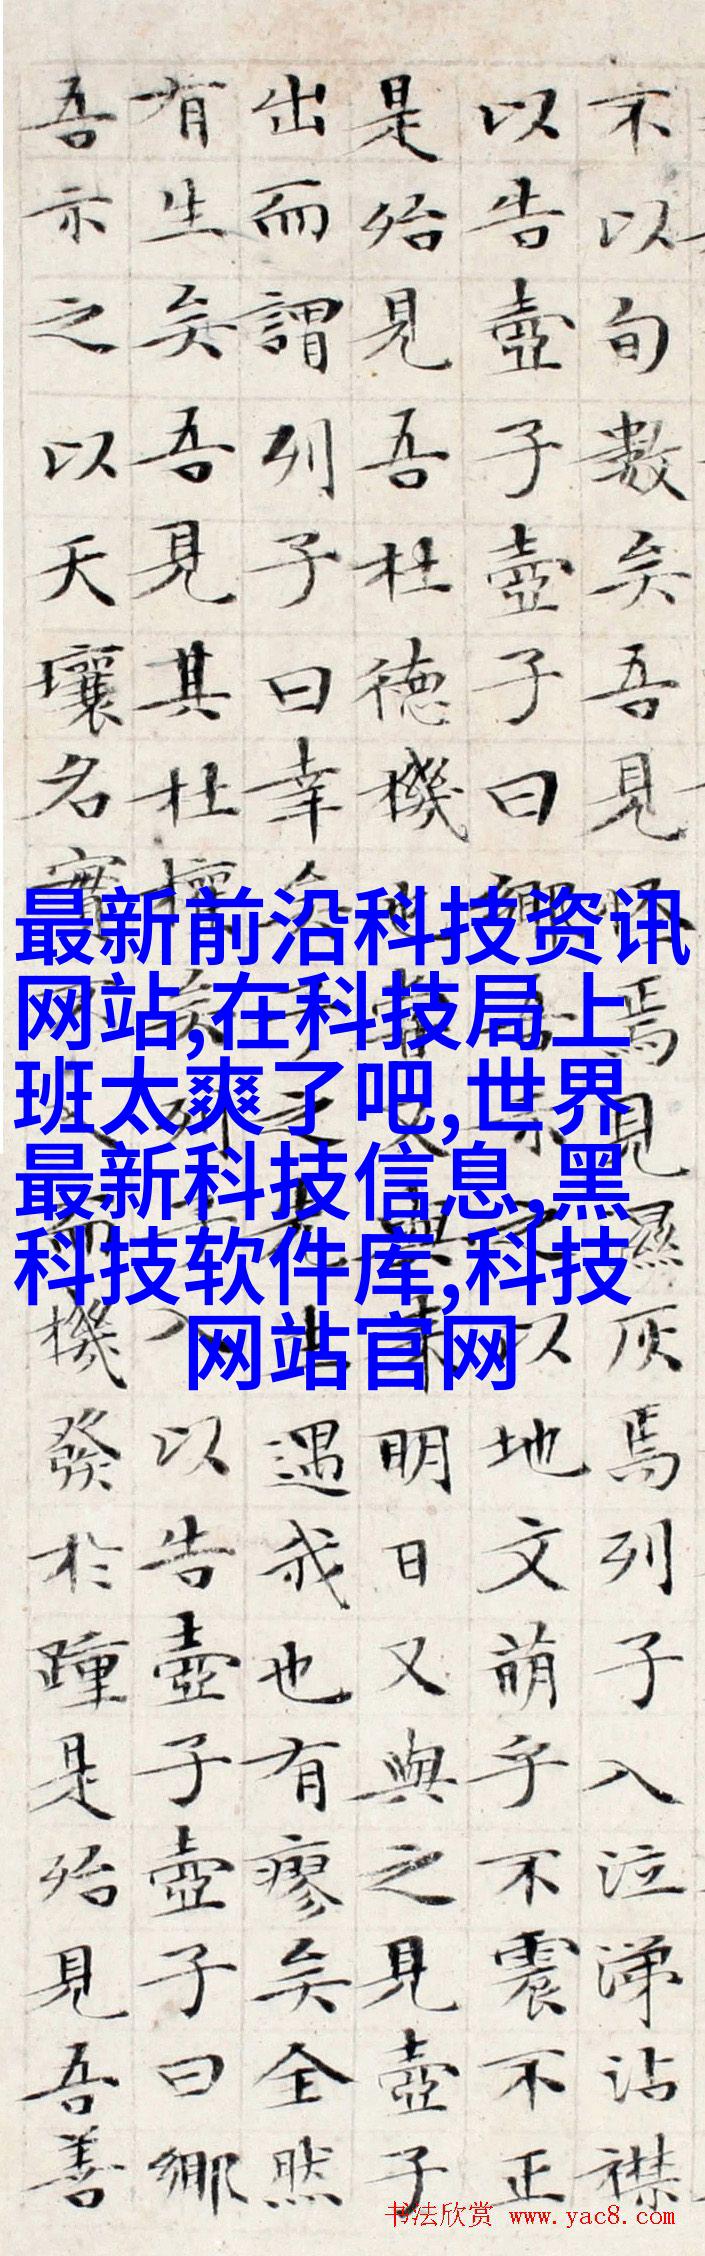 不以旬數矣吾見怪焉見濕灰焉列子入泣涕沾襟
以告壺子壺子曰鄉吾示之以地文萌乎不震不正
是殆見吾杜德機也嘗又與來明日又與之見壺子
出而謂列子曰幸矣子之先生遇我也有瘳矣全然
有生矣吾見其杜權矣列子入以告壺子壺子曰鄉
吾示之以天壤名實不入而機發於踵是殆見吾善
最新前沿科技资讯
网站,在科技局上
班太爽了吧,世界
最新科技信息,黑
科技软件库,科技
网站官网
书法欣赏 www.yac8.com